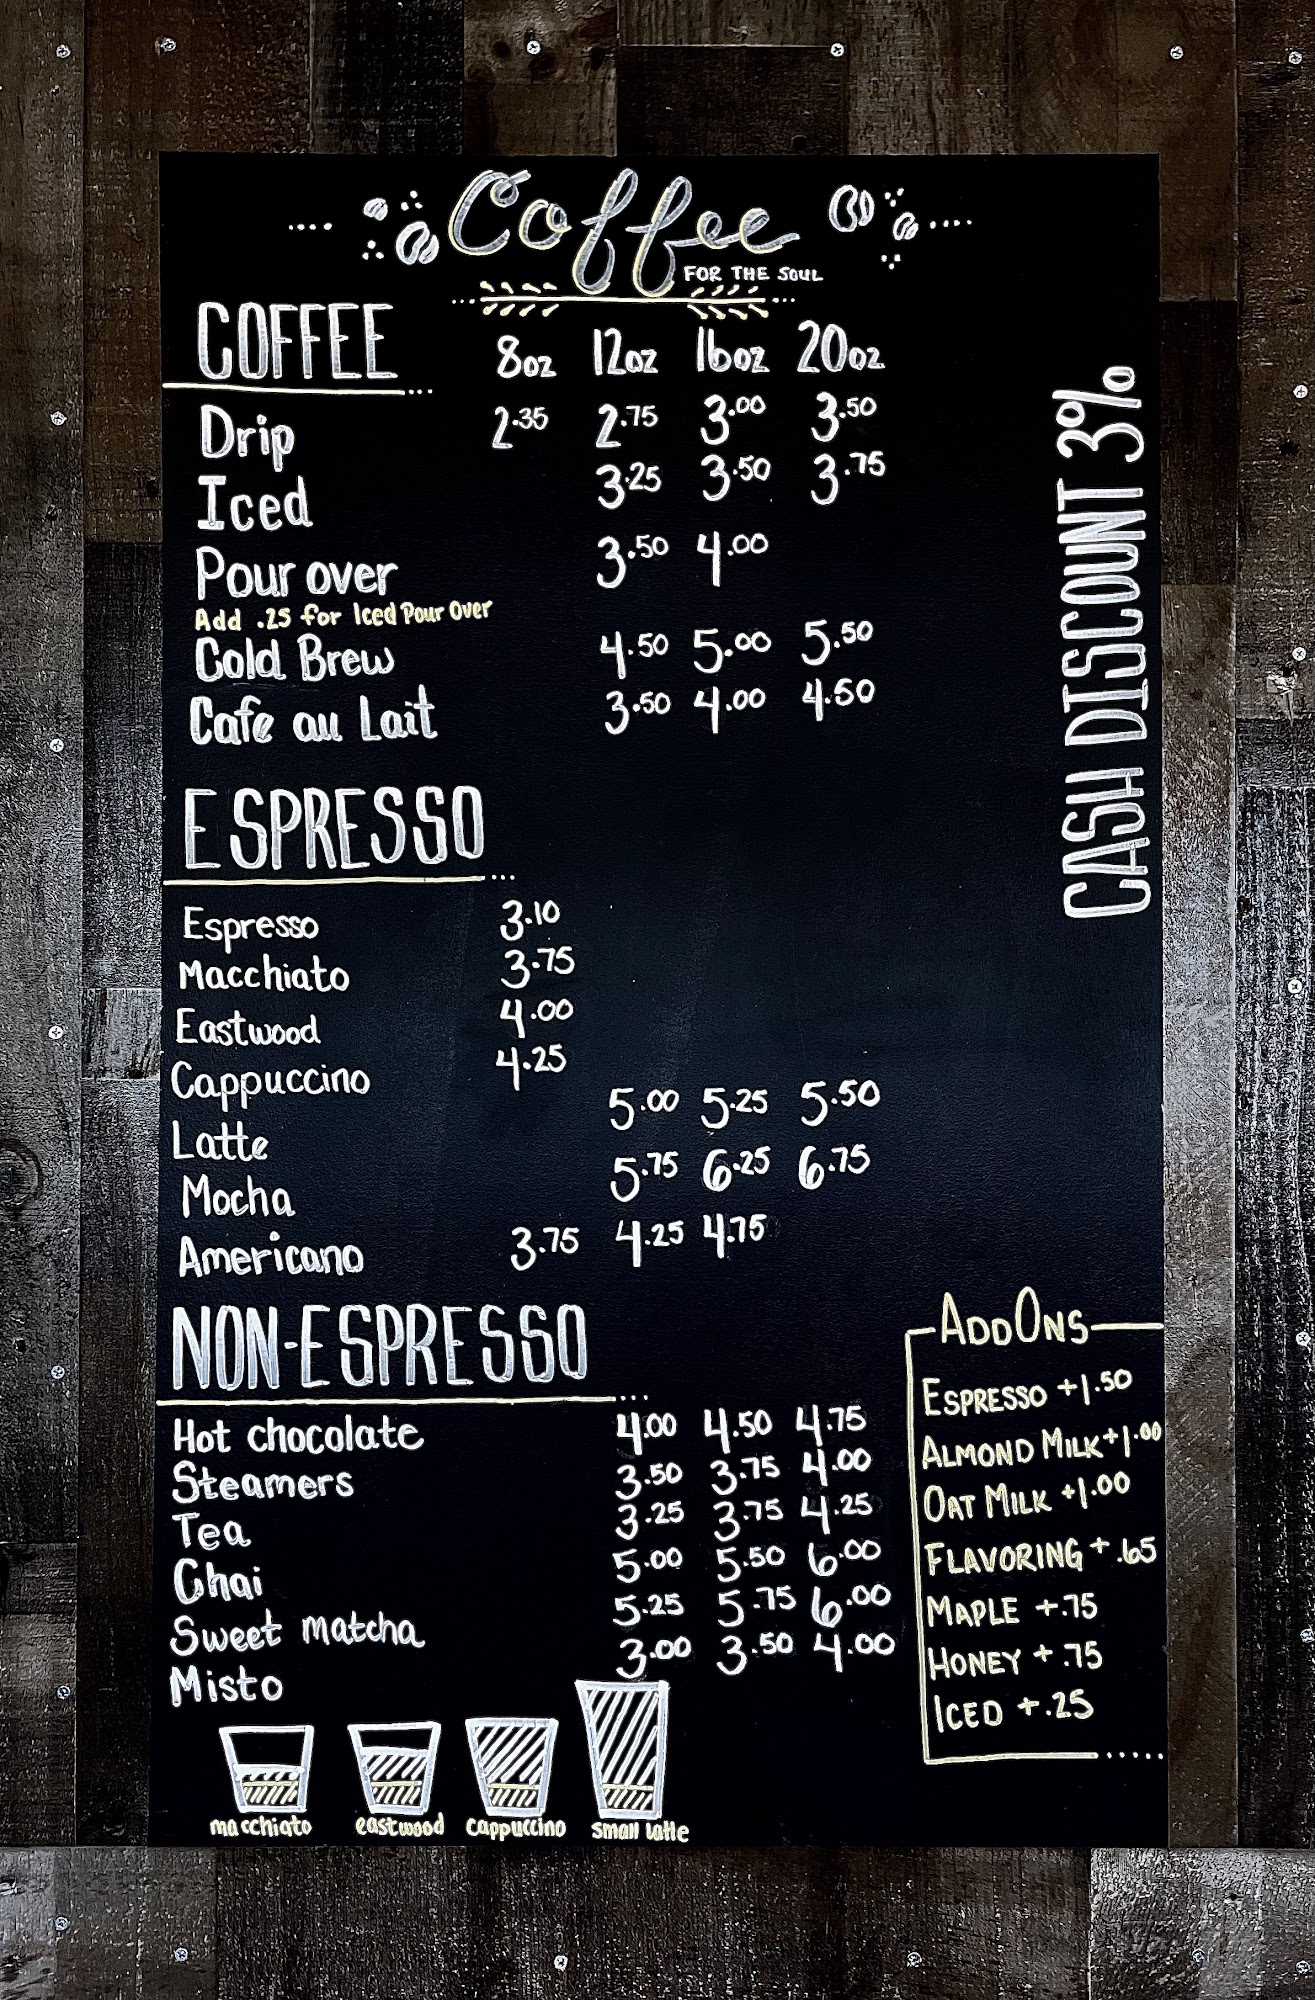 Coffee
FOR THE SOUL
COFFEE 8oz 12oz 16oz 20oz
Drip 2.35 2.75 3.00 3.50
Iced 3.25 3.50 3.75
Pour over 3.50 4.00
Add .25 for Iced Pour Over
Cold Brew 4.50 5.00 5.50
Cafe au Lait 3.50 4.00 4.50
CASH DISCOUNT 3%
ESPRESSO
Espresso 3.10
Macchiato 3.75
Eastwood 4.00
Cappuccino 4.25
Latte 5.00 5.25 5.50
Mocha 5.75 6.25 6.75
Americano 3.75 4.25 4.75
NON-ESPRESSO
Hot chocolate 4.00 4.50 4.75
Steamers 3.50 3.75 4.00
Tea 3.25 3.75 4.25
Chai 5.00 5.50 6.00
Sweet matcha 5.25 5.75 6.00
Misto 3.00 3.50 4.00
ADDONS
ESPRESSO +1.50
ALMOND MILK +1.00
OAT MILK +1.00
FLAVORING +.65
MAPLE +.75
HONEY +.75
ICED +.25
macchiato eastwood cappuccino small latte